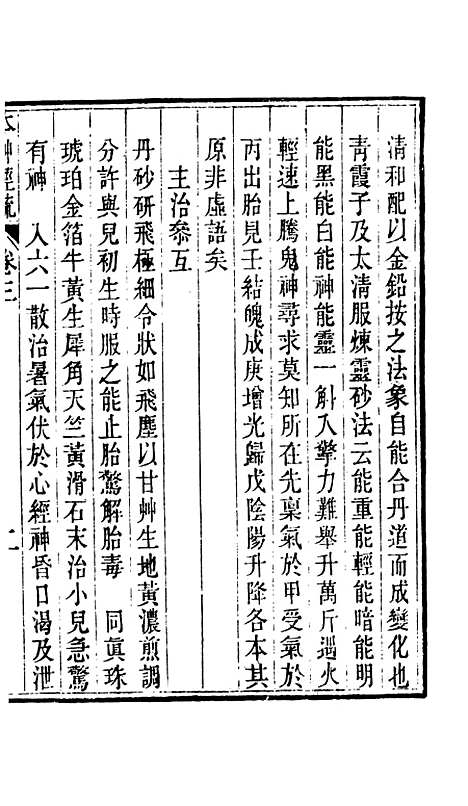 清和配以金鉛按之法象自能合丹道而成變化也
青霞子及太清服煉靈砂法云能重能輕能暗能明
能黑能白能神能靈一斛入擎力難舉升萬斤遇火
輕速上騰鬼神尋求莫知所在先稟氣於甲受氣於
丙出胎見壬結魄成庚增光歸戊陰陽升降各本其
原非虛語矣
主治叅互
丹砂研飛極細令狀如飛塵以甘艸生地黃濃煎調
分許與兒初生時服之能止胎驚解胎毒 同眞珠
琥珀金箔牛黃生犀角天竺黃滑石末治小兒急驚
有神 入六一散治暑氣伏於心經神昏口渴及泄
本艸經疏 卷三
二